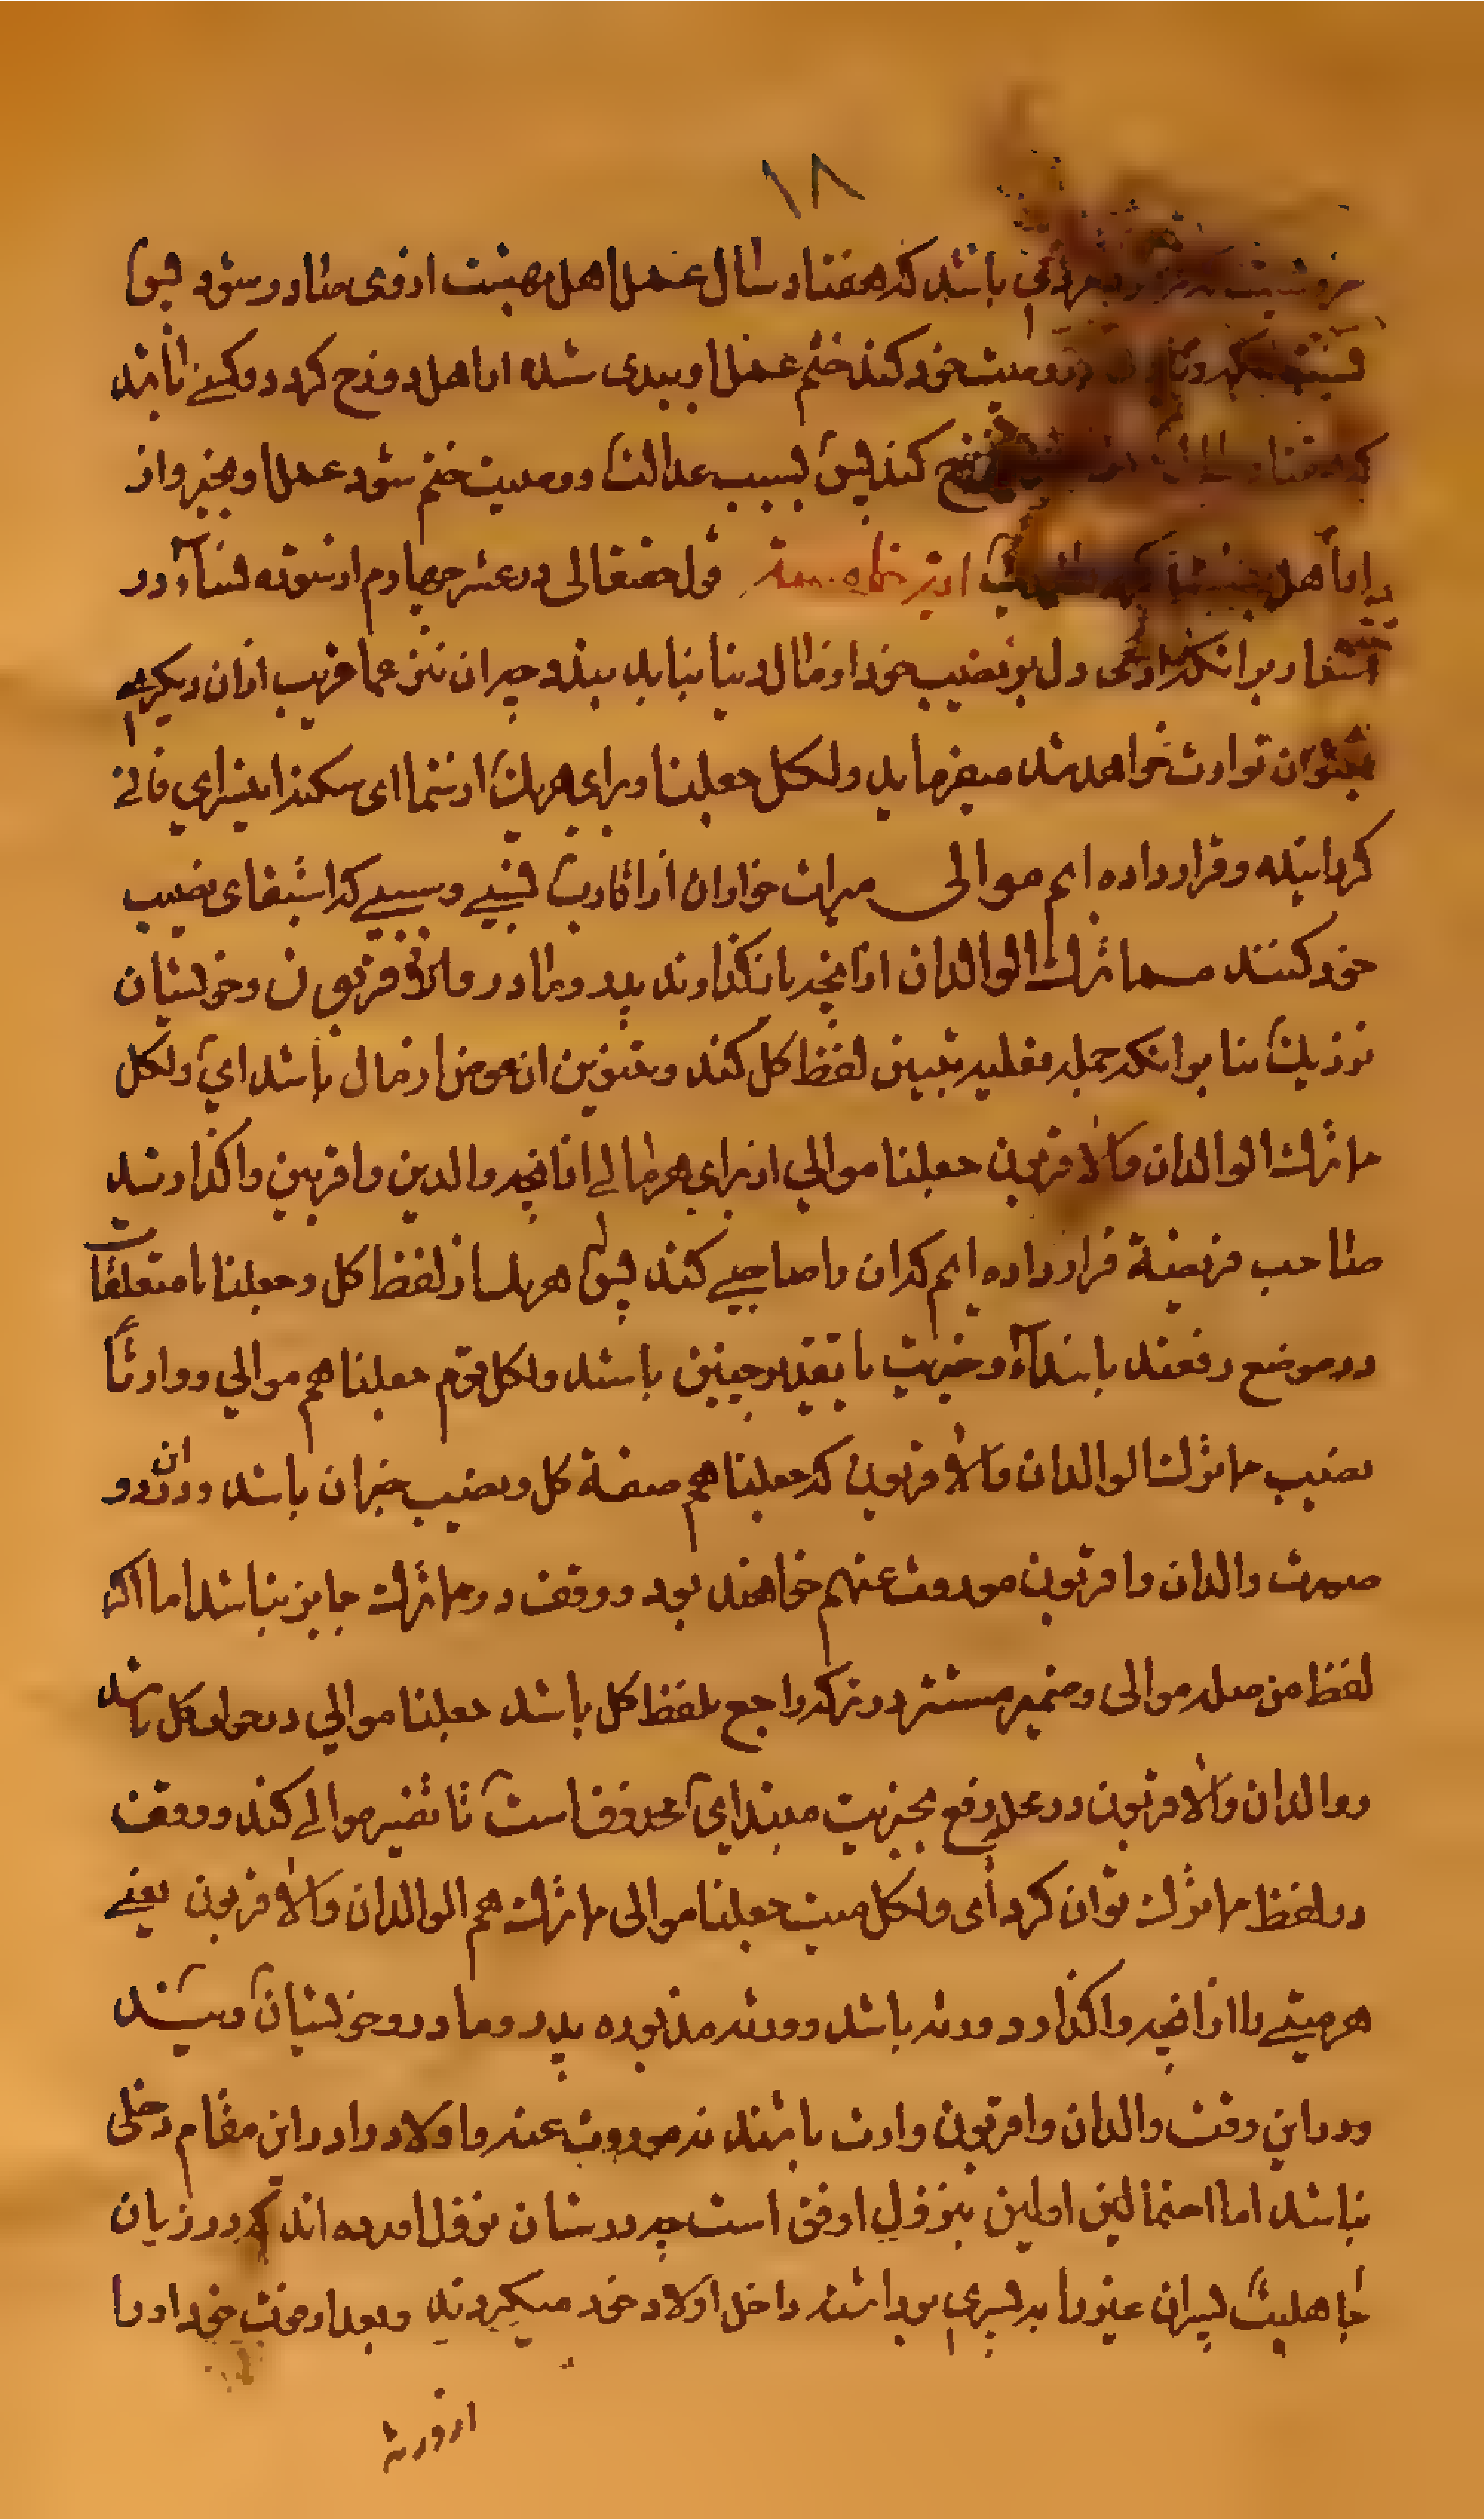 ۱۸
باشد که هفتاد سال عمل اهل بهشت از وی صادر شود پس
وصیت خود کند ختم عمل او ببدی شده از اهل دوزخ کردد و کسی باشد
کند پس بسبب عدالت در وصیت ختم شود عمل او بخیر و از
اهل بهشت قوله تعالی در عشر چهارم از سوره نساء در
اشعار بر انکه ادمی دل بر نصیب خود از مال دنیا نباید بندد چه ان نیز عما قریب از ان دیکری
بعنوان توارث خواهد شد میفرماید ولکل جعلنا و برای هر یک از شما ای سکنه این سرای فانی
کردانیده و قرار داده ایم موالی میراث خواران از اقارب نسبی و سببی که استیفای نصیب
خود کنند مما ترک الوالدان از انچه باز کذارند پدر و مادر والاقربون و خویشان
نزدیک بنا بر انکه جمله فعلیه تبیین لفظ کل کند و تنوین ان عوض از مال باشد ای ولکل
ما ترک الوالدان والاقربون جعلنا موالی از برای هر مالی از انچه والدین و اقربین وا کذارند
صاحب فریضة قرار داده ایم که ان را صاحبی کند پس هر یک از لفظ کل و جعلنا با متعلقات
در موضع رفعند بابتداء و خبریت یا تقدیر چنین باشد ولکل قوم جعلناهم موالی و وارثا
نصیب مما ترک الوالدان والاقربون که جعلناهم صفة کل و نصیب خبر ان باشد و در ان دو
صورت والدان و اقربون موروث عنهم خواهند بود و وقف در مما ترک جایز نباشد اما اکر
لفظ من صله موالی و ضمیر مستتر در ترک راجع بلفظ کل باشد جعلنا موالی در جوار کل باشد
و والدان والاقربون در محل رفع بخبریت مبتدای محذوف است تا تفسیر موالی کند و وقف
در لفظ مما ترک توان کرد ای ولکل میت جعلنا موالی مما ترک هم الوالدان والاقربون یعنی
هر میتی را از انچه وا کذارد ورثه باشد و ورثه مذبوره پدر و مادر و خویشان ویند
و در این وقت والدان و اقربون وارث باشند نه موروث عنه و اولاد را در این مقام دخلی
نباشد اما احتمالین اولین بنزول اوفق است چه در شان نزول اورده اند که در زمان
جاهلیت پسران غیر را به پسری برداشته داخل اولاد خود میکردند و بعد از موت خود او را
از ورثه